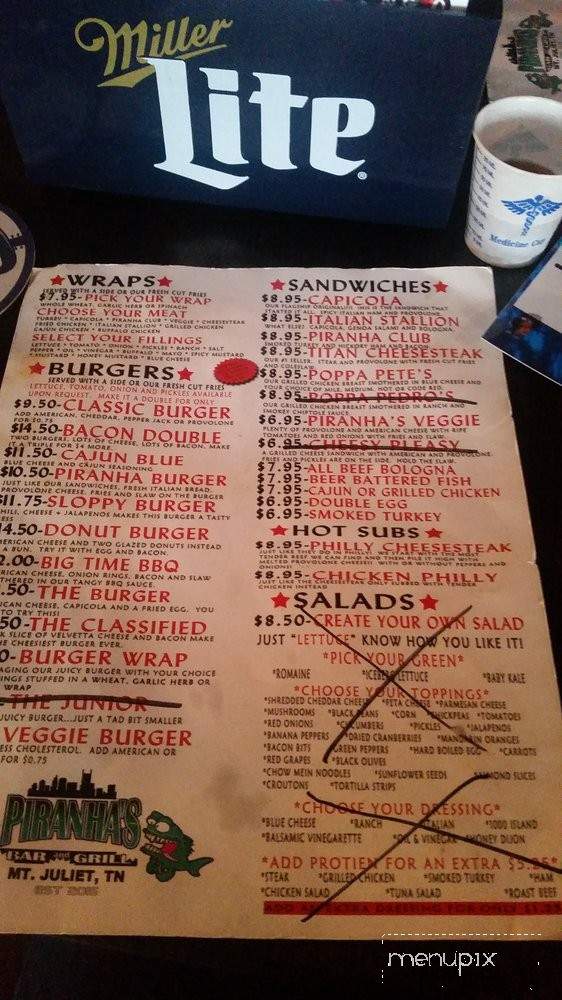 Miller
Lite
Medicine Cup
PIRANHA'S
MT. JULIET, TN
WRAPS
SERVED WITH A SIDE OR OUR FRESH CUT FRIES
$7.95-PICK YOUR WRAP
WHOLE WHEAT, GARLIC HERB OR SPINACH
CHOOSE YOUR MEAT
TURKEY * CAPICOLA * PIRANHA CLUB * VEGGIE * CHEESESTEAK
FRIED CHICKEN * ITALIAN STALLION * GRILLED CHICKEN
CAJUN CHICKEN * BUFFALO CHICKEN
SELECT YOUR FILLINGS
LETTUCE * TOMATO * ONION * PICKLES * RANCH * SALT
PEPPER * OIL * VINEGAR * BUFFALO * MAYO * SPICY MUSTARD
* MUSTARD * HONEY MUSTARD * BLUE CHEESE
BURGERS
SERVED WITH A SIDE OR OUR FRESH CUT FRIES
LETTUCE, TOMATO, ONION AND PICKLES AVAILABLE
UPON REQUEST. MAKE IT A DOUBLE FOR ONLY
$9.50-CLASSIC BURGER
ADD AMERICAN, CHEDDAR, PEPPER JACK OR PROVOLONE
FOR $0.75
$14.50-BACON DOUBLE
TWO BURGERS, LOTS OF CHEESE, LOTS OF BACON. MAKE
IT A TRIPLE FOR $4 MORE
$11.50-CAJUN BLUE
BLUE CHEESE AND CAJUN SEASONING
$10.50-PIRANHA BURGER
JUST LIKE OUR SANDWICHES. FRESH ITALIAN BREAD,
PROVOLONE CHEESE, FRIES AND SLAW ON THE BURGER
$11.75-SLOPPY BURGER
CHILI, CHEESE + JALAPENOS MAKES THIS BURGER A TASTY
14.50-DONUT BURGER
AMERICAN CHEESE AND TWO GLAZED DONUTS INSTEAD
A BUN. TRY IT WITH EGG AND BACON.
2.00-BIG TIME BBQ
RICAN CHEESE, ONION RINGS, BACON AND SLAW
THERED IN OUR TANGY BBQ SAUCE.
.50-THE BURGER
ICAN CHEESE, CAPICOLA AND A FRIED EGG. YOU
TO TRY THIS!
50-THE CLASSIFIED
K SLICE OF VELVETTA CHEESE AND BACON MAKE
HE CHEESIEST BURGER EVER.
0-BURGER WRAP
AGING OUR JUICY BURGER WITH YOUR CHOICE
INGS STUFFED IN A WHEAT, GARLIC HERB OR
WRAP
-THE JUNIOR
JUICY BURGER...JUST A TAD BIT SMALLER
VEGGIE BURGER
ESS CHOLESTEROL. ADD AMERICAN OR
FOR $0.75
PIRANHA'S
BAR and GRILL
MT. JULIET, TN
EST 2015
SANDWICHES
$8.95-CAPICOLA
OUR FLAGSHIP ORIGINAL!!! THIS IS THE SANDWICH THAT
STARTED IT ALL. SPICY ITALIAN HAM AND PROVOLONE
$8.95-ITALIAN STALLION
WHAT ELSE? CAPICOLA, GENOA SALAMI AND BOLOGNA.
$8.95-PIRANHA CLUB
SMOKED TURKEY AND HICKORY HAM AND BACON
$8.95-TITAN CHEESESTEAK
OUR #1 SELLER. STEAK AND PROVOLONE WITH FRESH CUT FRIES
AND COLESLAW.
$8.95-POPPA PETE'S
OUR GRILLED CHICKEN BREAST SMOTHERED IN BLUE CHEESE AND
YOUR CHOICE OF MILD, MEDIUM, HOT OR CODE RED.
$8.95-POPPA PEDRO'S
OUR GRILLED CHICKEN BREAST SMOTHERED IN RANCH AND
SMOKEY CHIPTOLE SAUCE
$6.95-PIRANHA'S VEGGIE
PLENTY OF PROVOLONE AND AMERICAN CHEESE WITH RIPE
TOMATOES AND RED ONIONS WITH FRIES AND SLAW.
$6.95-CHEESY PLEASY
A GRILLED CHEESE SANDWICH WITH AMERICAN AND PROVOLONE.
FRIES AND PICKLES ARE ON THE SIDE. HOLD THE SLAW.
$7.95-ALL BEEF BOLOGNA
$7.95-BEER BATTERED FISH
$7.95-CAJUN OR GRILLED CHICKEN
$6.95-DOUBLE EGG
$6.95-SMOKED TURKEY
HOT SUBS
$8.95-PHILLY CHEESESTEAK
JUST LIKE THEY DO IN PHILLY! WE START WITH THE MOST
TENDER BEEF WE CAN FIND AND THEN PILE IT HIGH WITH
MELTED PROVOLONE CHEESE!! WITH OR WITHOUT PEPPERS AND
ONIONS!
$8.95-CHICKEN PHILLY
JUST LIKE THE CHEESESTEAK ONLY WE USE TENDER
CHICKEN INSTEAD
SALADS
$8.50-CREATE YOUR OWN SALAD
JUST "LETTUCE" KNOW HOW YOU LIKE IT!
*PICK YOUR GREEN*
*ROMAINE *ICEBERG LETTUCE *BABY KALE
*CHOOSE YOUR TOPPINGS*
*SHREDDED CHEDDAR CHEESE *FETA CHEESE *PARMESAN CHEESE
*MUSHROOMS *BLACK BEANS *CORN *CHICKPEAS *TOMATOES
*RED ONIONS *CUCUMBERS *PICKLES *JALAPENOS
*BANANA PEPPERS *DRIED CRANBERRIES *MANDARIN ORANGES
*BACON BITS *GREEN PEPPERS *HARD BOILED EGG *CARROTS
*RED GRAPES *BLACK OLIVES
*CHOW MEIN NOODLES *SUNFLOWER SEEDS *ALMOND SLICES
*CROUTONS *TORTILLA STRIPS
*CHOOSE YOUR DRESSING*
*BLUE CHEESE *RANCH *ITALIAN *1000 ISLAND
*BALSAMIC VINEGARETTE *OIL & VINEGAR *HONEY DIJON
*ADD PROTIEN FOR AN EXTRA $5.25*
*STEAK *GRILLED CHICKEN *SMOKED TURKEY *HAM
*CHICKEN SALAD *TUNA SALAD *ROAST BEEF
ADD AN EXTRA DRESSING FOR ONLY $1.25
menupix